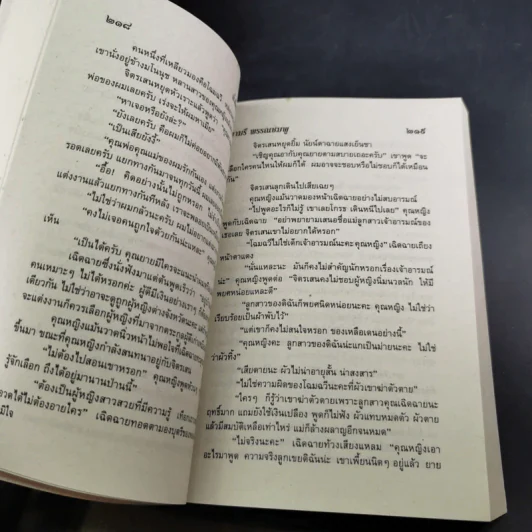 ๒๑๘
คนหนึ่งที่เหลียวมองคือโฉมฉวี
เขานั่งอยู่ข้างมโนนุช หลานสาวของคุณ
จิตรเสนหยุดหัวเราะแล้วพูดว่า
พ่อของผมเลยครับ เร่งจะให้ผมหาเมีย"
"หาเจอหรือยังล่ะ?"
"ยังเลยครับ คือผมก็ไม่ค่อยอยาก
"เป็นเสียยังงี้"
"คุณพ่อคุณแม่ของผมรักกัน
รอดเลยครับ แยกทางกันมาจนทุกวันนี้
"อื้อ! คิดอย่างนั้นไม่ถูกหรอก
แต่งงานแล้วแยกทางกันทีหลัง เราจะ
"ไม่ใช่ว่าผมกลัวนะครับ
"คงไม่เจอคนถูกใจด้วยกันน่ะ
เห็น
"เป็นได้ครับ คุณยายมีใครจะแนะ
เฉิดฉายซึ่งนั่งฟังมาแต่ต้นพูดเร็วว่า
คนเหมาะๆ ไม่ได้หรอกค่ะ ผู้ดีมีเงินอย่างเราๆ
เดียวกัน ไม่ใช่ว่าอาจะดูถูกผู้หญิงต่างจังหวัด
จะแต่งงานก็ควรเลือกผู้หญิงที่มาจากตระกูลผู้ดี
คุณหญิงแม้นวาดนิ่วหน้าไม่พอใจที่เฉิดฉาย
ขึ้นมา ขณะที่คุณหญิงกำลังสนทนาอยู่กับจิตรเสน
"ไม่ต้องไปสอนเขาหรอก" คุณหญิงพูด
รู้จักเลือก ถึงได้อยู่มานานป่านนี้"
"ต้องเป็นผู้หญิงสาวสวยที่มีความรู้
อวดได้ไม่ต้องอายใคร" เฉิดฉายทอดตามอง
มีใจ
พรรณชมพู
๒๑๙
จิตรเสนหยุดยิ้ม นัยน์ตาฉายแสงเอ็นชา
"เชิญคุณอากับคุณยายตามสบายเถอะครับ" เขาพูด "จะ
เลือกใครคนไหนให้ผมก็ได้ ผมอาจจะชอบหรือไม่ชอบก็ได้เหมือน
กัน"
จิตรเสนลุกเดินไปเสียเฉยๆ
คุณหญิงแม้นวาดมองหน้าเฉิดฉายอย่างไม่สบอารมณ์
"ไปพูดอะไรก็ไม่รู้ เขาเลยโกรธ เดินหนีไปเลย" คุณหญิง
พูดกับเฉิดฉาย "อย่าพยายามเสนอชื่อแม่ลูกสาวเจ้าอารมณ์
ของเธอเลย จิตรเสนเขาไม่อยากได้หรอก"
"โฉมฉวีไม่ใช่เด็กเจ้าอารมณ์นะคะคุณหญิง" เฉิดฉายเถียง
หน้าตาแดง
"นั่นแหละนะ มันก็คงไม่สำคัญนักหรอกเรื่องเจ้าอารมณ์
น่ะ" คุณหญิงพูดต่อ "จิตรเสนคงไม่ชอบผู้หญิงมีมนวลนัก ให้มี
พยศหน่อยแหละดี"
"ลูกสาวของดิฉันก็พยศนิดหน่อยนะคะ คุณหญิง ไม่ใช่ว่า
เรียบร้อยเป็นผ้าพับไว้"
"แต่เขาก็คงไม่สนใจหรอก ของเหลือเดนอย่างนี้"
"คุณหญิงคะ ลูกสาวของดิฉันน่ะแกเป็นม่ายนะคะ ไม่ใช่
ว่าผัวทิ้ง"
"เสียดายนะ ผัวไม่น่าอายุสั้น น่าสงสาร"
"ไม่ใช่ความผิดของโฉมฉวีนะคะที่ผัวเขาฆ่าตัวตาย"
"ใครๆ ก็รู้ว่าเขาฆ่าตัวตายเพราะลูกสาวคุณเฉิดฉายนะ
ฤทธิ์มาก แถมยังใช้เงินเปลือง พูดก็ไม่ฟัง ผัวแทบหมดตัว ผัวตาย
แล้วมีสมบัติเหลือเท่าไหร่ แม่ก็ล้างผลาญอีกจนหมด"
"ไม่จริงนะคะ" เฉิดฉายท้วงเสียงแหลม "คุณหญิงเอา
อะไรมาพูด ความจริงลูกเขยดิฉันน่ะ เขาเพี้ยนนิดๆ อยู่แล้ว ยาย